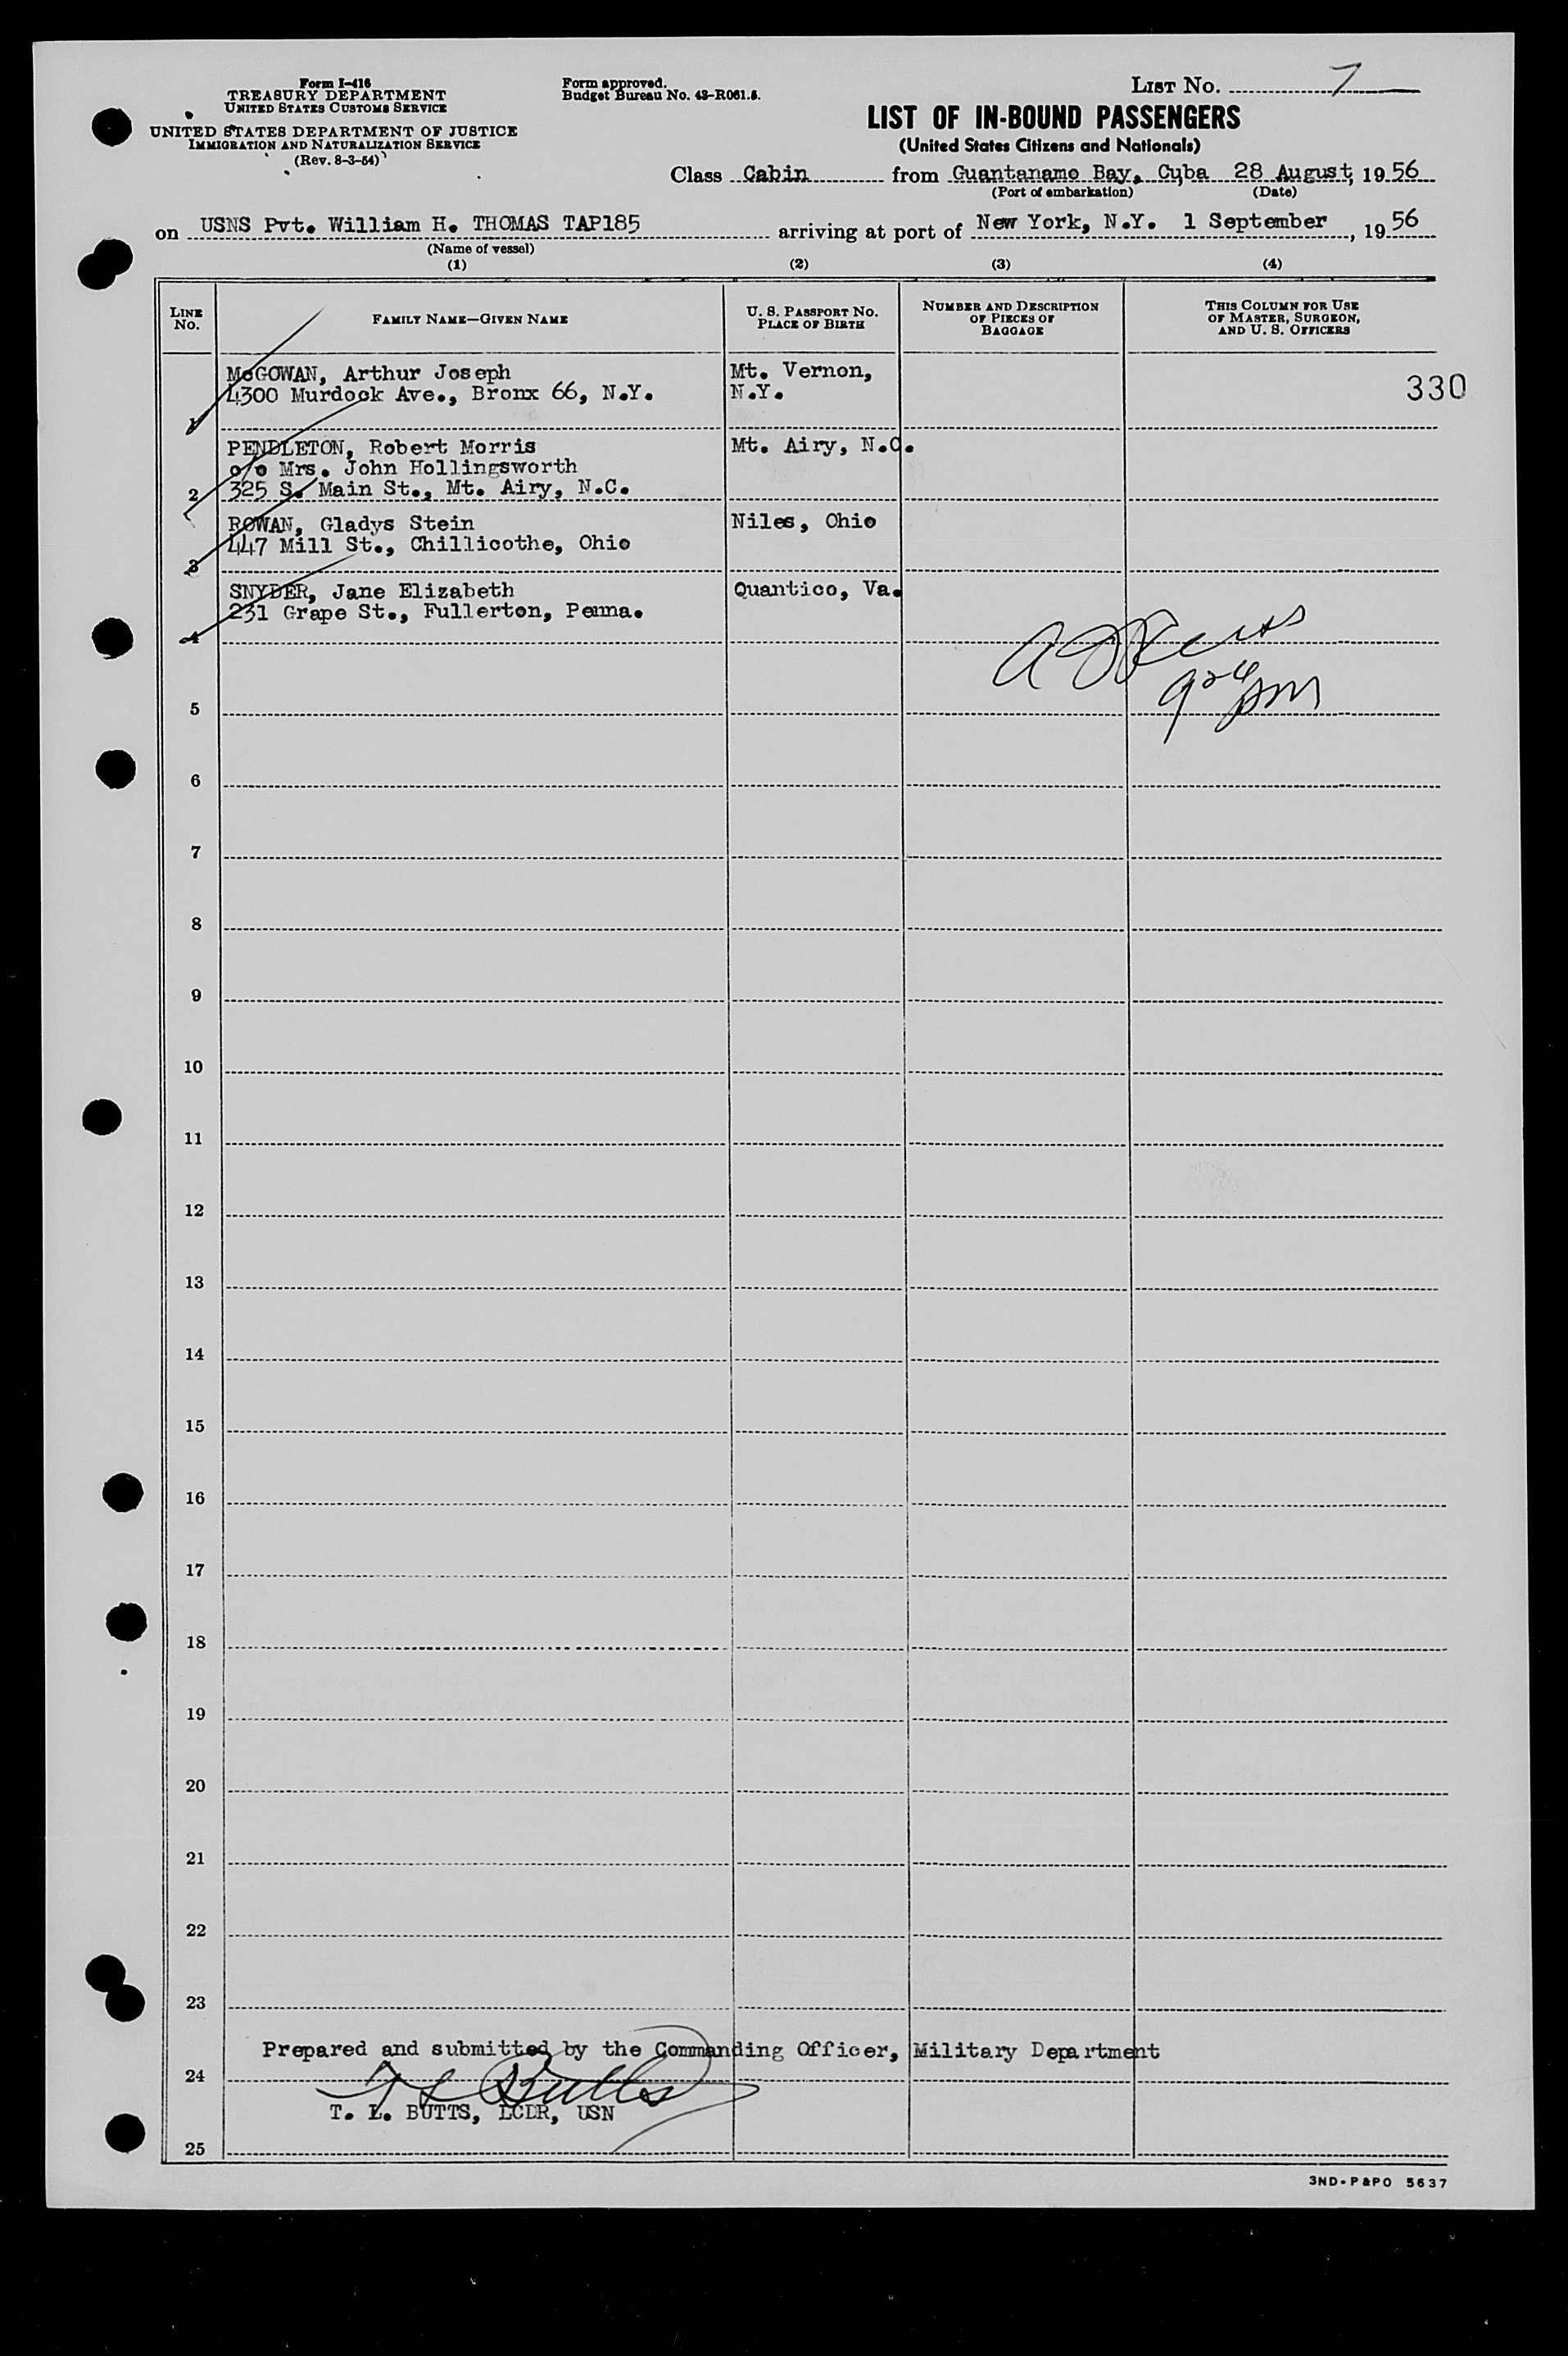 Form I-416
TREASURY DEPARTMENT
UNITED STATES CUSTOMS SERVICE
UNITED STATES DEPARTMENT OF JUSTICE
IMMIGRATION AND NATURALIZATION SERVICE
(Rev. 8-3-54)
Form approved.
Budget Bureau No. 43-R061.5.
LIST No. 7
LIST OF IN-BOUND PASSENGERS
(United States Citizens and Nationals)
Class Cabin from Guantanamo Bay, Cuba 28 August, 1956
(Port of embarkation) (Date)
on USNS Pvt. William H. THOMAS TAP185 arriving at port of New York, N.Y. 1 September, 1956
(Name of vessel)
(1) (2) (3) (4)
LINE No. FAMILY NAME—GIVEN NAME U. S. PASSPORT No. PLACE OF BIRTH NUMBER AND DESCRIPTION OF PIECES OF BAGGAGE THIS COLUMN FOR USE OF MASTER, SURGEON, AND U. S. OFFICERS
McGOWAN, Arthur Joseph Mt. Vernon,
4300 Murdock Ave., Bronx 66, N.Y. N.Y. 330
1
PENDLETON, Robert Morris Mt. Airy, N.C.
c/o Mrs. John Hollingsworth
2 325 S. Main St., Mt. Airy, N.C.
ROWAN, Gladys Stein Niles, Ohio
447 Mill St., Chillicothe, Ohio
3
SNYDER, Jane Elizabeth Quantico, Va.
231 Grape St., Fullerton, Penna.
4
pm
5
6
7
8
9
10
11
12
13
14
15
16
17
18
19
20
21
22
23
Prepared and submitted by the Commanding Officer, Military Department
24 T L Butts
T. L. BUTTS, LCDR, USN
25
3ND-P&PO 5637